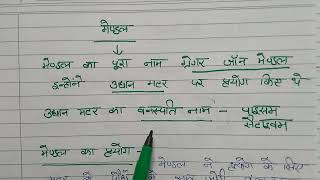 मेण्डल
→ मेण्डल का पूरा नाम ग्रेगर जॉन मेण्डल
इन्होंने उद्यान मटर पर प्रयोग किए थे
उद्यान मटर का वनस्पति नाम - पाइसम
सैटाइवम
मेण्डल का प्रयोग -
मेण्डल ने प्रयोग के लिए
मटर के पौधे